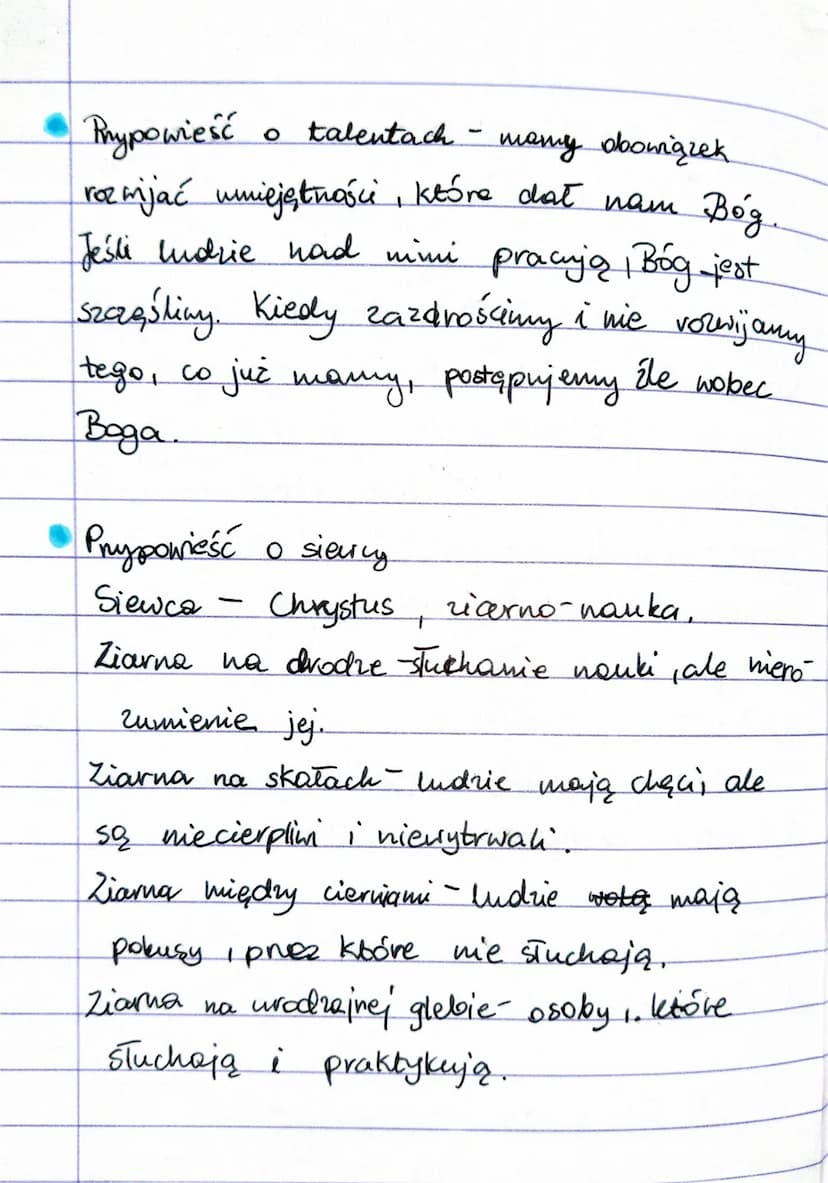 Przypowieść o talentach - mamy obowiązek
rozwijać umiejętności, które dał nam Bóg.
Jeśli ludzie nad nimi pracują, Bóg jest
szczęśliwy. Kiedy zazdrościmy i nie rozwijamy
tego, co już mamy, postępujemy źle wobec
Boga.
Przypowieść o siewcy
Siewca - Chrystus, ziarno-nauka.
Ziarna na drodze -słuchanie nauki, ale niero-
zumienie jej.
Ziarna na skałach - ludzie mają chęci, ale
są niecierpliwi i niewytrwali.
Ziarna między cierniami - ludzie wolą mają
pokusy, przez które nie słuchają.
Ziarna na urodzajnej glebie- osoby, które
słuchają i praktykują.